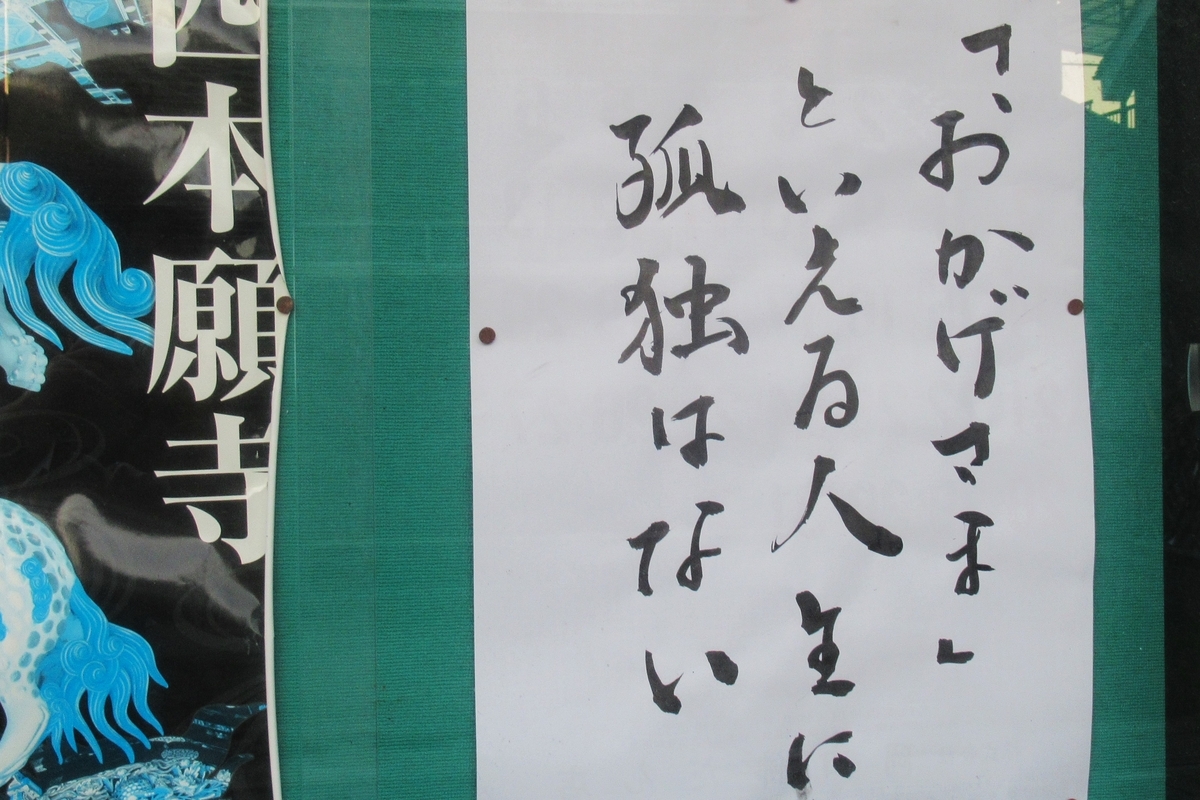 「おかげさま」
といえる人生に
孤独はない
西本願寺